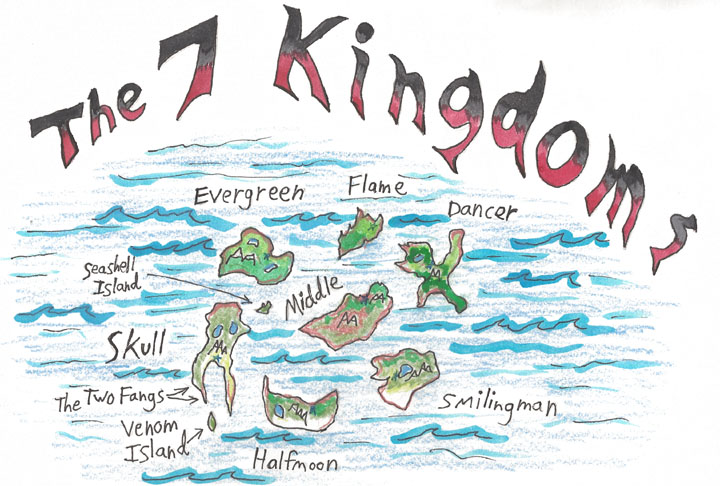 The 7 Kingdoms
Evergreen
Flame
Dancer
Seashell
Island
Middle
Skull
The Two Fangs
Venom
Island
Halfmoon
Smilingman